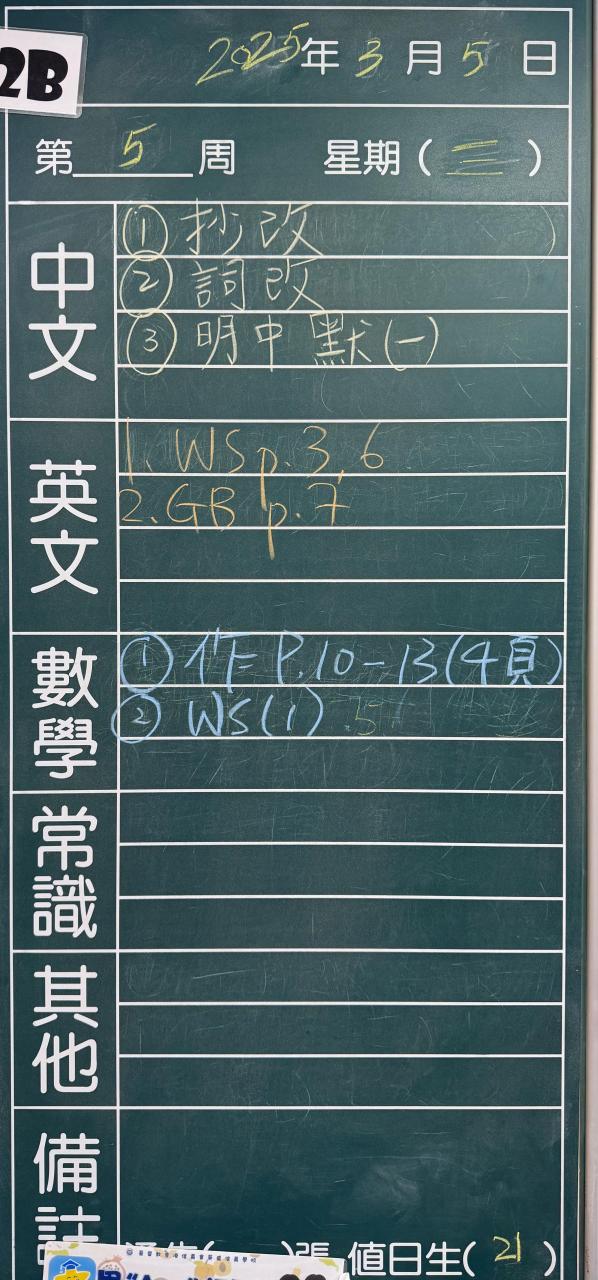 2B
2025年3月5日
第5周 星期(三)
中文
① 抄改
② 詞改
③ 明中默(一)
英文
1. WS p.3,6
2. GB p.7
數學
① 作 P.10-13(4頁)
② WS(1)
常識
其他
備註
張,值日生(21)